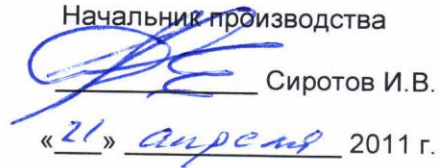 Начальник производства
Сиротов И.В.
«21» апреля 2011 г.